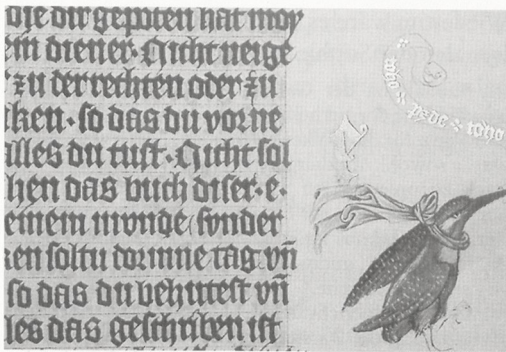 die dir gepoten hat moy
ein diener· Nicht neige
zu der rechten oder zu
ken· so das du vorne
alles du tust· Nicht sol
hen das buch diser·e·
einem munde sunder
ken soltu dorinne tag vn̄
so das du behutest vn̄
les das geschriben ist
toho pzde toho